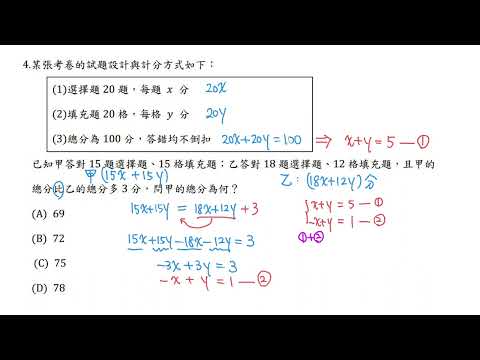 4.某張考卷的試題設計與計分方式如下：
(1)選擇題 20 題，每題 x 分 20x
(2)填充題 20 格，每格 y 分 20y
(3)總分為 100 分，答錯均不倒扣 20x+20y=100 ⇒ x+y=5 — ①
已知甲答對 15 題選擇題、15 格填充題；乙答對 18 題選擇題、12 格填充題，且甲的
甲 (15x+15y) 乙：(18x+12y)分
總分比乙的總分多 3 分，問甲的總分為何？
(A) 69
15x+15y = 18x+12y+3
(B) 72
15x+15y-18x-12y=3
-3x+3y=3
(C) 75
-x+y=1 — ②
(D) 78
x+y=5 — ①
-x+y=1 — ②
①+②